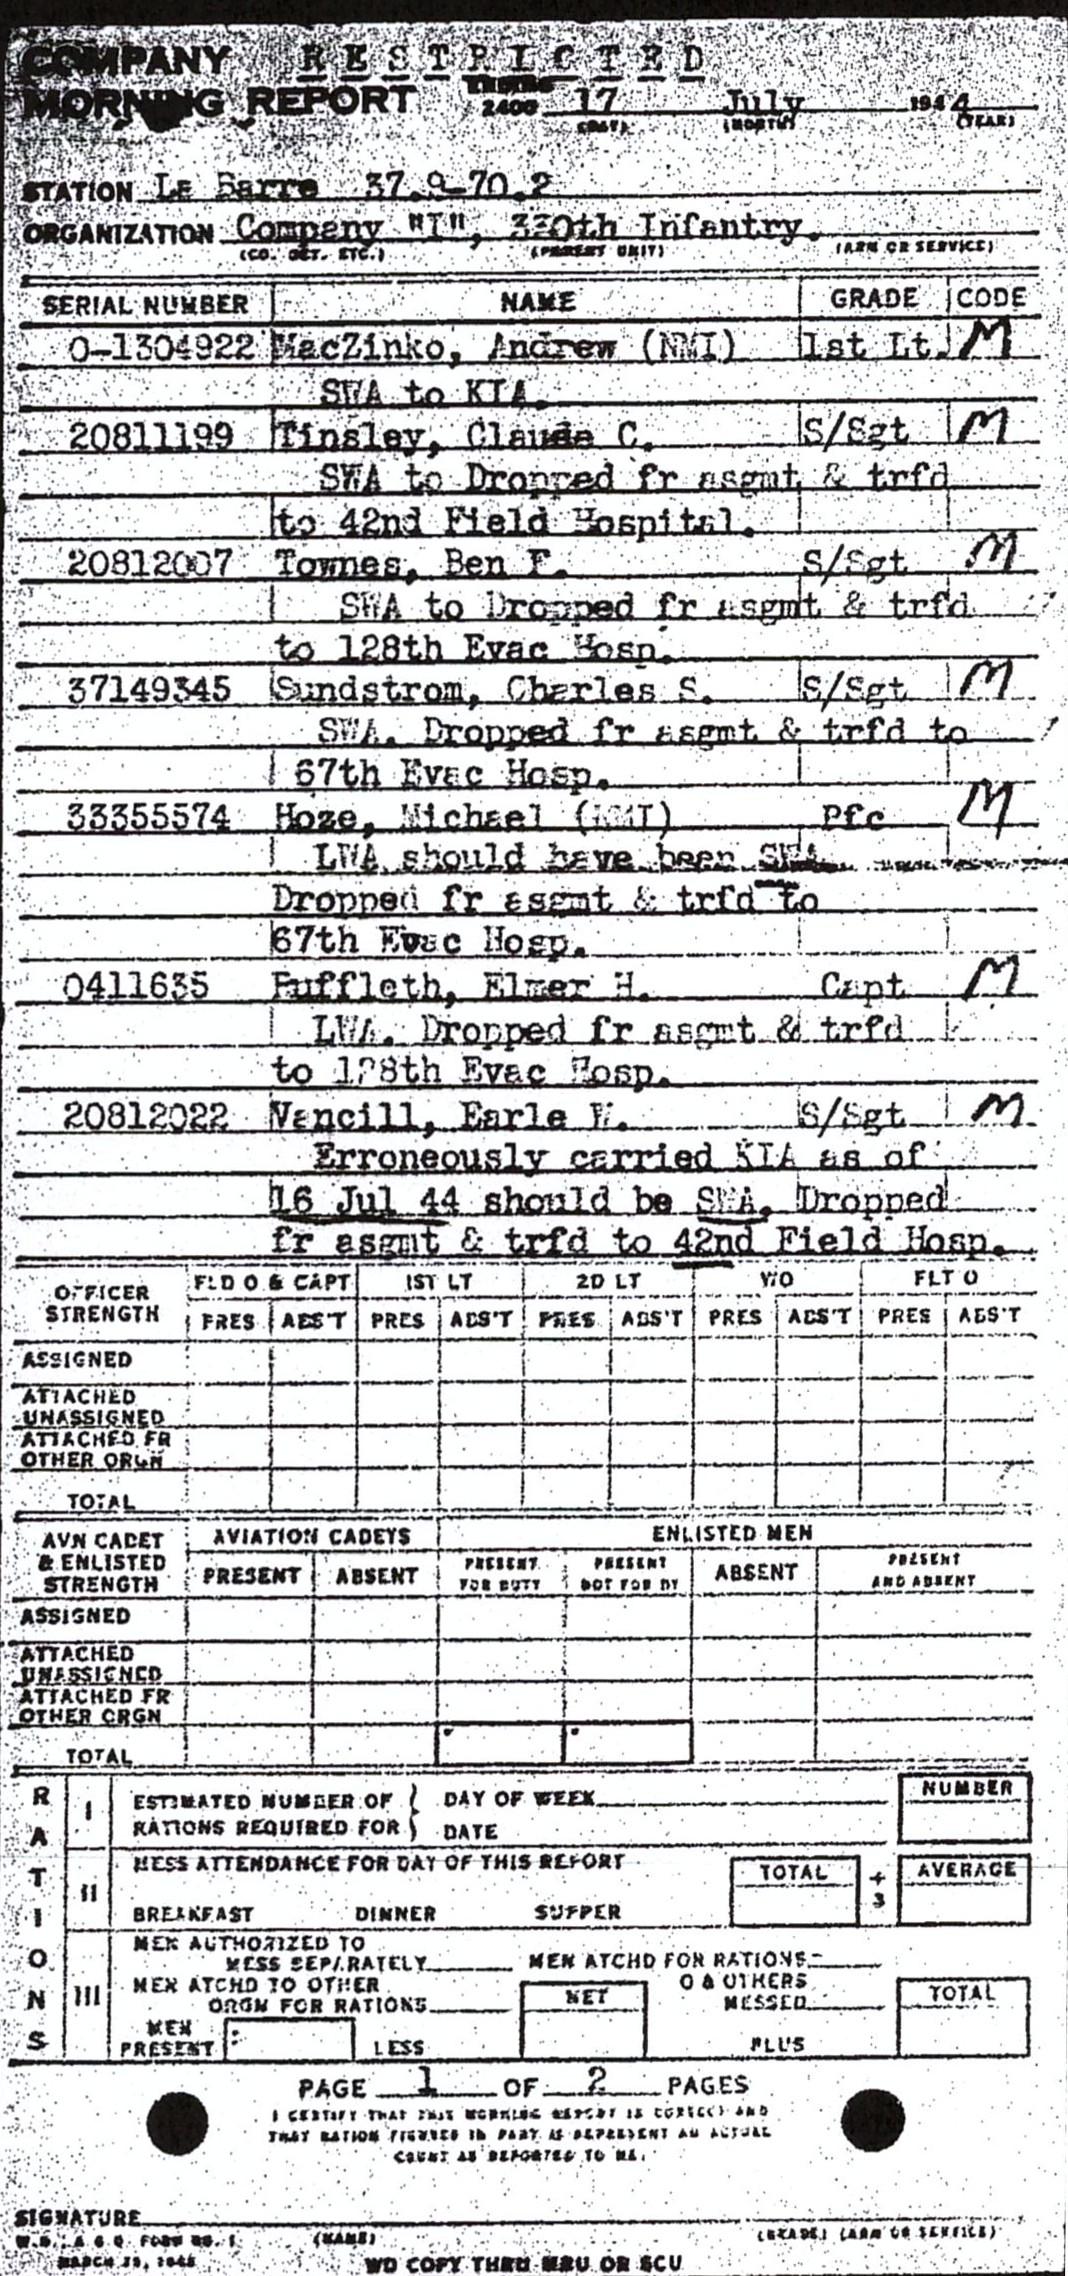 COMPANY R E S T R I C T E D
MORNING REPORT ENDING 2400 17 July 1944
(DAY) (MONTH) (YEAR)
STATION La Barre 37.9-70.2
ORGANIZATION Company "I", 330th Infantry.
(CO. DET. ETC.) (PARENT UNIT) (ARM OR SERVICE)
SERIAL NUMBER NAME GRADE CODE
O-1304922 MacZinko, Andrew (NMI) 1st Lt. M
SWA to KIA.
20811199 Tinsley, Claude C. S/Sgt M
SWA to Dropped fr asgmt & trfd
to 42nd Field Hospital.
20812007 Townes, Ben F. S/Sgt M
SWA to Dropped fr asgmt & trfd
to 128th Evac Hosp.
37149345 Sundstrom, Charles S. S/Sgt M
SWA. Dropped fr asgmt & trfd to
67th Evac Hosp.
33355574 Hoze, Michael (NMI) Pfc M
LWA should have been SWA
Dropped fr asgmt & trfd to
67th Evac Hosp.
0411635 Fuffleth, Elmer H. Capt M
LWA. Dropped fr asgmt & trfd
to 128th Evac Hosp.
20812022 Vancill, Earle W. S/Sgt M
Erroneously carried KIA as of
16 Jul 44 should be SWA. Dropped
fr asgmt & trfd to 42nd Field Hosp.
OFFICER STRENGTH FLD O & CAPT 1ST LT 2D LT W/O FLT O
PRES ABS'T PRES ABS'T PRES ABS'T PRES ABS'T PRES ABS'T
ASSIGNED
ATTACHED
UNASSIGNED
ATTACHED FR
OTHER ORGN
TOTAL
AVN CADET & ENLISTED STRENGTH AVIATION CADETS ENLISTED MEN
PRESENT ABSENT PRESENT FOR DUTY PRESENT NOT FOR DY ABSENT PRESENT AND ABSENT
ASSIGNED
ATTACHED
UNASSIGNED
ATTACHED FR
OTHER ORGN
TOTAL
RATIONS
I ESTIMATED NUMBER OF DAY OF WEEK NUMBER
RATIONS REQUIRED FOR DATE
II MESS ATTENDANCE FOR DAY OF THIS REPORT TOTAL ÷ 3 AVERAGE
BREAKFAST DINNER SUPPER
III MEN AUTHORIZED TO
MESS SEPARATELY MEN ATCHD FOR RATIONS
MEN ATCHD TO OTHER
ORGN FOR RATIONS NET O & OTHERS MESSED TOTAL
MEN PRESENT LESS PLUS
PAGE 1 OF 2 PAGES
I CERTIFY THAT THIS MORNING REPORT IS CORRECT AND
THAT RATION FIGURES IN PART III REPRESENT AN ACTUAL
COUNT AS REPORTED TO ME.
SIGNATURE
W.D., A.G.O. FORM NO. 1 (NAME) (GRADE) (ARM OR SERVICE)
MARCH
WD COPY THRU MRU OR SCU